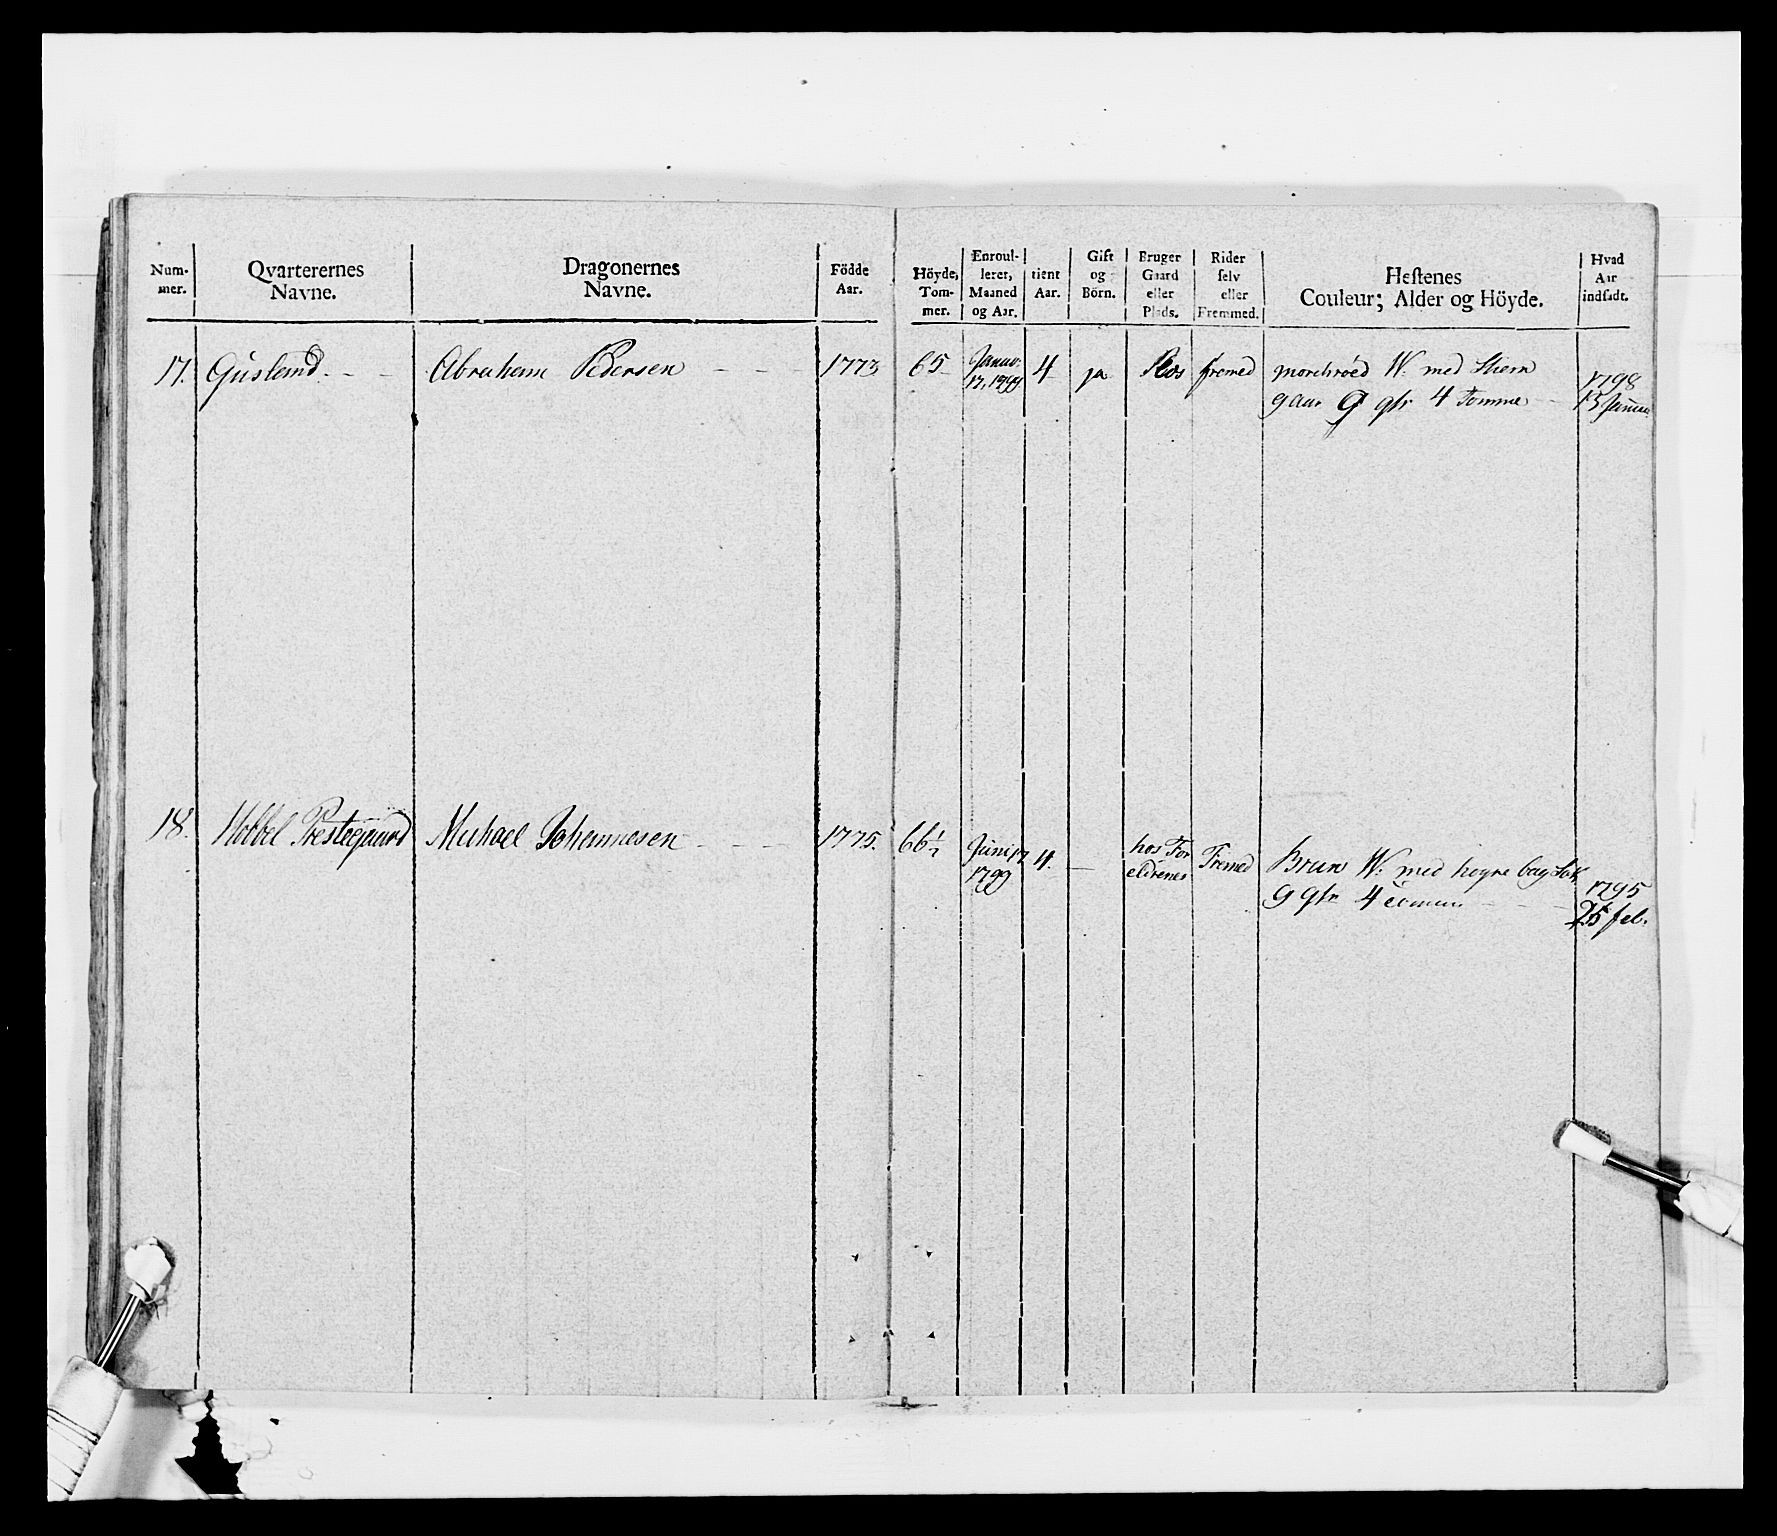 Num-
mer.
Qvarterernes
Navne.
Dragonernes
Navne.
Födde
Aar.
Höyde,
Tom-
mer.
Enroul-
leret,
Maaned
og Aar.
tient
Aar.
Gift
og
Börn.
Bruger
Gaard
eller
Plads.
Rider
selv
eller
Fremmed.
Hestenes
Couleur; Alder og Höyde.
Hvad
Aar
indsadt.
17. Guslund - -
Abraham Pedersen - - -
1773
65
Januar
17, 1799
4
ja
fremed
W: med Stiern
9 aar 9 qtr 4 Tomme
1798
13 Januar
18. Holbel Prestegaard
Michael Johannesen - - -
1775.
66½
Juni 17
1799
4.
—
hos For
eldrenes
Fremed
Brun W: med høyre bag
9 qtr 4 tomme - - -
1795
25 feb.